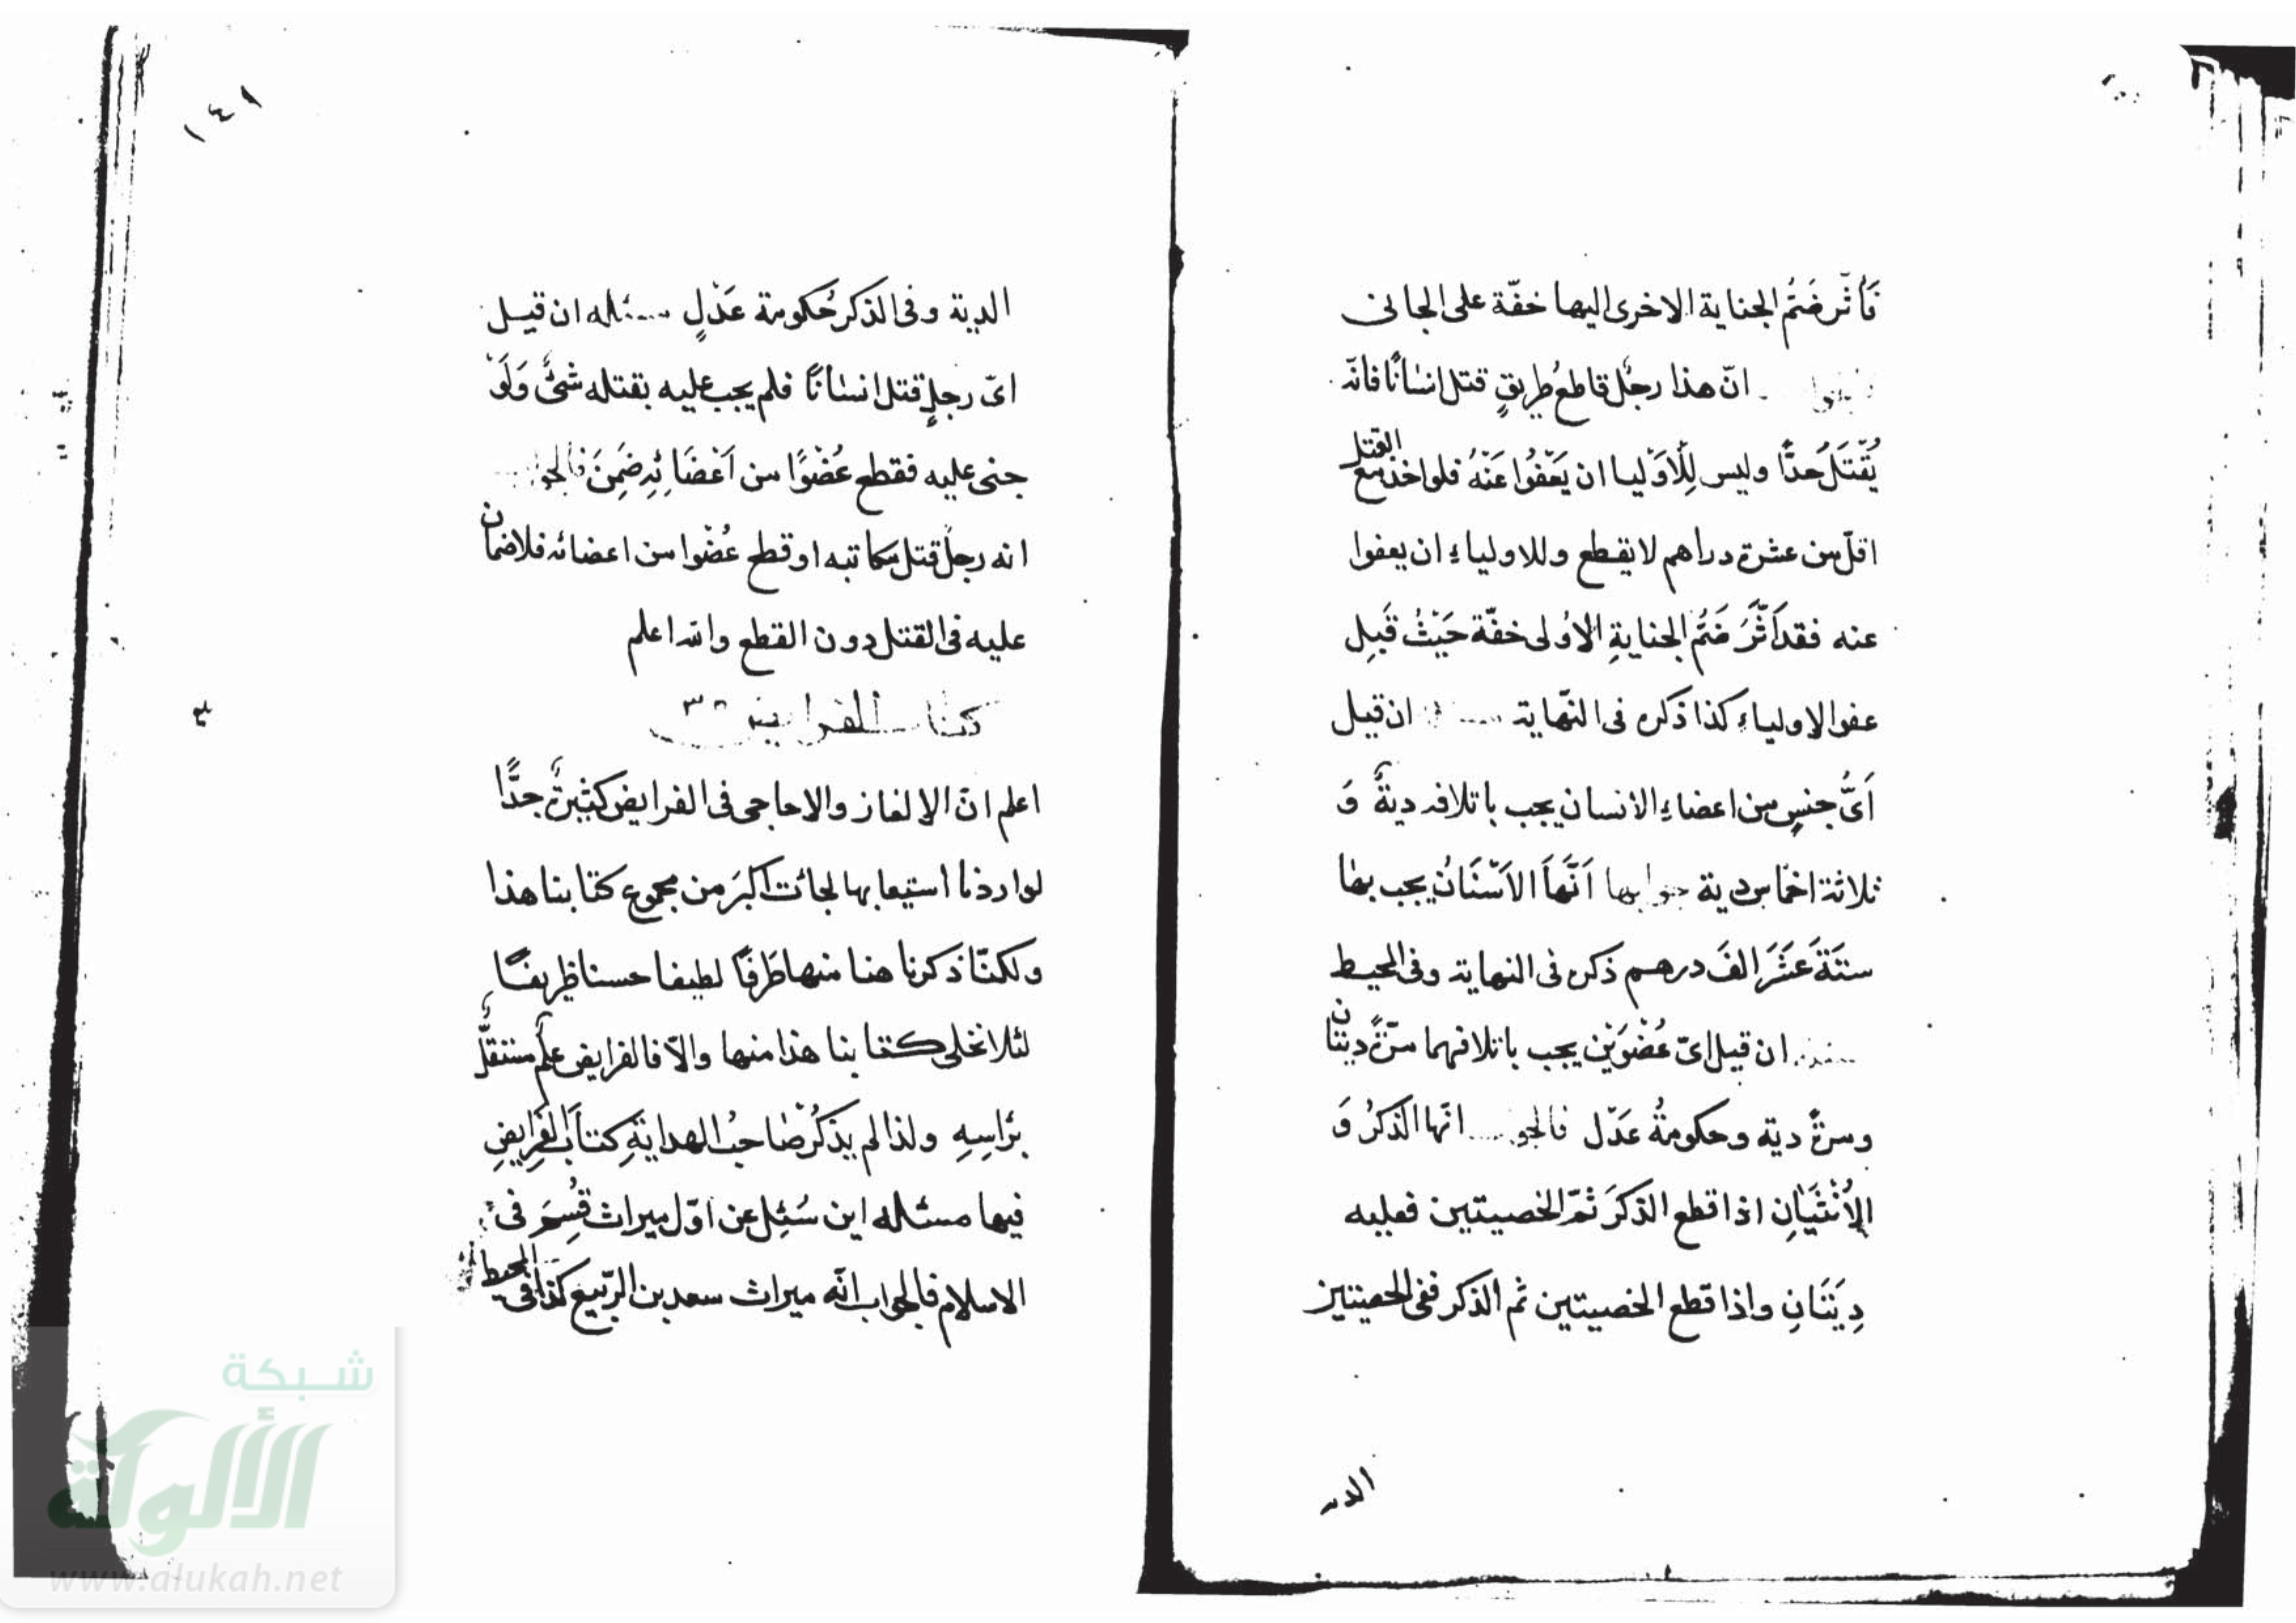 فَأثَّر ضَمُّ الجناية الاخرى اليها خفّة على الجانى
انّ هذا رجلٌ قاطعُ طريقٍ قتل انسانًا فانّه
يُقْتَلُ حدًّا وليس لِلْاَوْليا ان يَعْفُوا عَنْهُ فلو اخذ مع القتل
اقلّ من عشرة دراهم لا يقطع وللاولياءِ ان يعفوا
عنه فقد اَثَّرَ ضَمُّ الجنايةِ الاُولى خفّة حَيْثُ قَبِل
عفو الاولياءِ كذا ذكره فى النّهاية ان قيل
اَىُّ جنسٍ من اعضاءِ الانسان يجب باتلافه ديةٌ وَ
ثلاثة اخماس دية جوابها اَنَّها الاَسْنَانُ يجب بها
ستَةَ عَشَرَ الفَ درهم ذكره فى النهاية وفى المحيط
ان قيل اىّ عُضْوَيْن يجب باتلافهما مرّةً ديتان
ومرةً دية وحكومةُ عَدْل فالجو انّها الذكرُ وَ
الاُنْثَيَانِ اذا قطع الذكرَ ثمّ الخصيتين فعليه
دِيَتَانِ واذا قطع الخصيتين ثم الذكر ففى الخصيتين
الديه
١٤١
الدية وفى الذكر حُكومة عَدْلٍ مسئله ان قيل
اىّ رجلٍ قتل انسانًا فلم يجب عليه بقتله شئٌ وَلَوْ
جنى عليه فقطع عُضْوًا من اَعْضَائِهِ ضَمِنَ فالجوا
انه رجلٌ قتل مكاتبه او قطع عُضْوا من اعضائه فلا ضمان
عليه فى القتل دون القطع والله اعلم
كتاب الفرايض
اعلم انّ الالغاز والاحاجى فى الفرايض كثيرةٌ جدًّا
لو اردنا استيعابها لجائت اكبَرَ من مجموع كتابنا هذا
ولكنّا ذكرنا هنا منها طَرفًا لطيفا حسنا ظريفًا
لئلا تخلى كتابنا هذا منها والّا فالفرايض علمٌ مستقلٌّ
برَاسِهِ ولذا لم يَذكُرْ صَاحبُ الهدايةِ كتابَ الفَرايضِ
فيها مسئله اين سُئِل عن اوّل ميراث قُسِمَ فى
الاسلام فالجواب انّه ميراث سعد بن الرّبيع كذا فى المحيط
شبكة
الألوكة
www.alukah.net